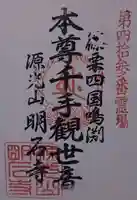 第四拾三番霊場
総案四国鳴渕
本尊千手観世音
源光山明石寺